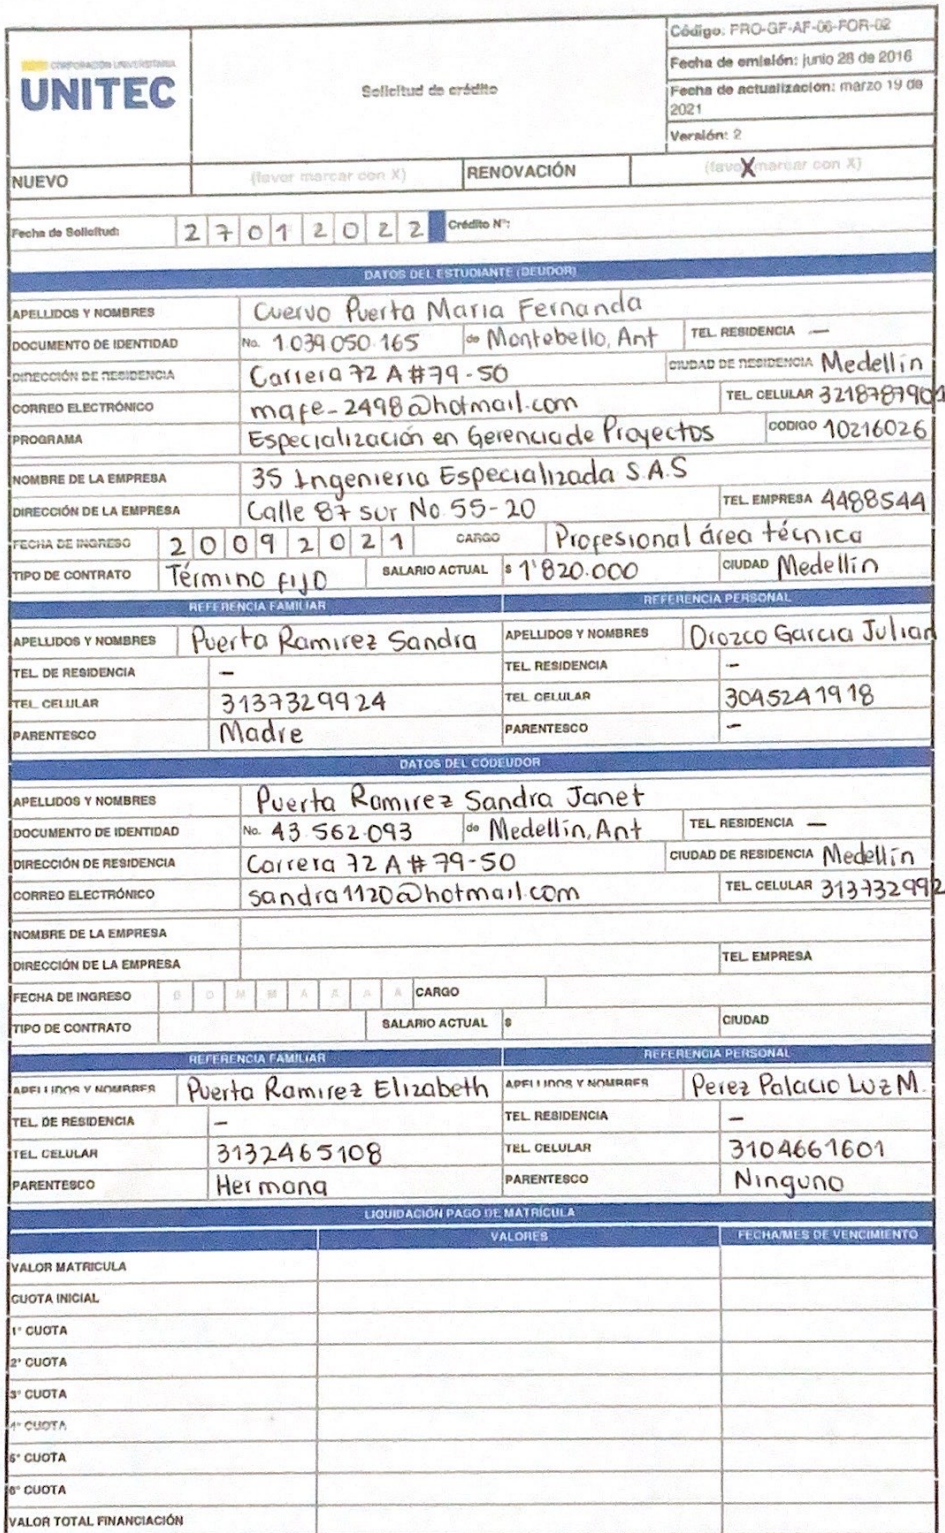 CORPORACIÓN UNIVERSITARIA
UNITEC
Solicitud de crédito
Código: PRO-GF-AF-06-FOR-02
Fecha de emisión: junio 28 de 2016
Fecha de actualización: marzo 19 de
2021
Versión: 2
NUEVO (favor marcar con X) RENOVACIÓN (favo X marcar con X)
Fecha de Solicitud: 2 7 0 1 2 0 2 2 Crédito N°:
DATOS DEL ESTUDIANTE (DEUDOR)
APELLIDOS Y NOMBRES Cuervo Puerta Maria Fernanda
DOCUMENTO DE IDENTIDAD No. 1.039 050.165 de Montebello, Ant TEL. RESIDENCIA —
DIRECCIÓN DE RESIDENCIA Carrera 72 A # 79-50 CIUDAD DE RESIDENCIA Medellín
CORREO ELECTRÓNICO mafe-2498@hotmail.com TEL. CELULAR 3218787901
PROGRAMA Especialización en Gerencia de Proyectos CODIGO 10216026
NOMBRE DE LA EMPRESA 35 Ingenieria Especializada S.A.S
DIRECCIÓN DE LA EMPRESA Calle 87 sur No. 55-20 TEL. EMPRESA 4488544
FECHA DE INGRESO 2 0 0 9 2 0 2 1 CARGO Profesional área técnica
TIPO DE CONTRATO Término fijo SALARIO ACTUAL $ 1'820.000 CIUDAD Medellín
REFERENCIA FAMILIAR REFERENCIA PERSONAL
APELLIDOS Y NOMBRES Puerta Ramirez Sandra APELLIDOS Y NOMBRES Orozco Garcia Julian
TEL. DE RESIDENCIA — TEL. RESIDENCIA —
TEL. CELULAR 3137329924 TEL. CELULAR 3045241918
PARENTESCO Madre PARENTESCO —
DATOS DEL CODEUDOR
APELLIDOS Y NOMBRES Puerta Ramirez Sandra Janet
DOCUMENTO DE IDENTIDAD No. 43.562.093 de Medellín, Ant TEL. RESIDENCIA —
DIRECCIÓN DE RESIDENCIA Carrera 72 A # 79-50 CIUDAD DE RESIDENCIA Medellín
CORREO ELECTRÓNICO sandra1120@hotmail.com TEL. CELULAR 313732992
NOMBRE DE LA EMPRESA
DIRECCIÓN DE LA EMPRESA TEL. EMPRESA
FECHA DE INGRESO D D M M A A A A CARGO
TIPO DE CONTRATO SALARIO ACTUAL $ CIUDAD
REFERENCIA FAMILIAR REFERENCIA PERSONAL
APELLIDOS Y NOMBRES Puerta Ramirez Elizabeth APELLIDOS Y NOMBRES Perez Palacio Luz M.
TEL. DE RESIDENCIA — TEL. RESIDENCIA —
TEL. CELULAR 3132465108 TEL. CELULAR 3104661601
PARENTESCO Hermana PARENTESCO Ninguno
LIQUIDACIÓN PAGO DE MATRÍCULA
VALORES FECHA/MES DE VENCIMIENTO
VALOR MATRICULA
CUOTA INICIAL
1° CUOTA
2° CUOTA
3° CUOTA
4° CUOTA
5° CUOTA
6° CUOTA
VALOR TOTAL FINANCIACIÓN